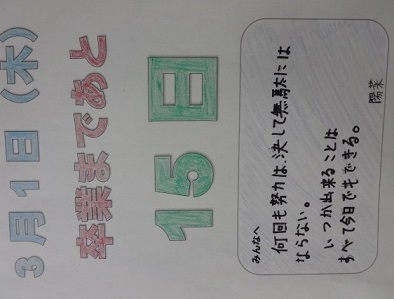 3月1日(木)
卒業まであと
15日
みんなへ
何回も努力は、決して無駄には
ならない。
いつか出来ることは
すべて今日でもできる。
陽菜